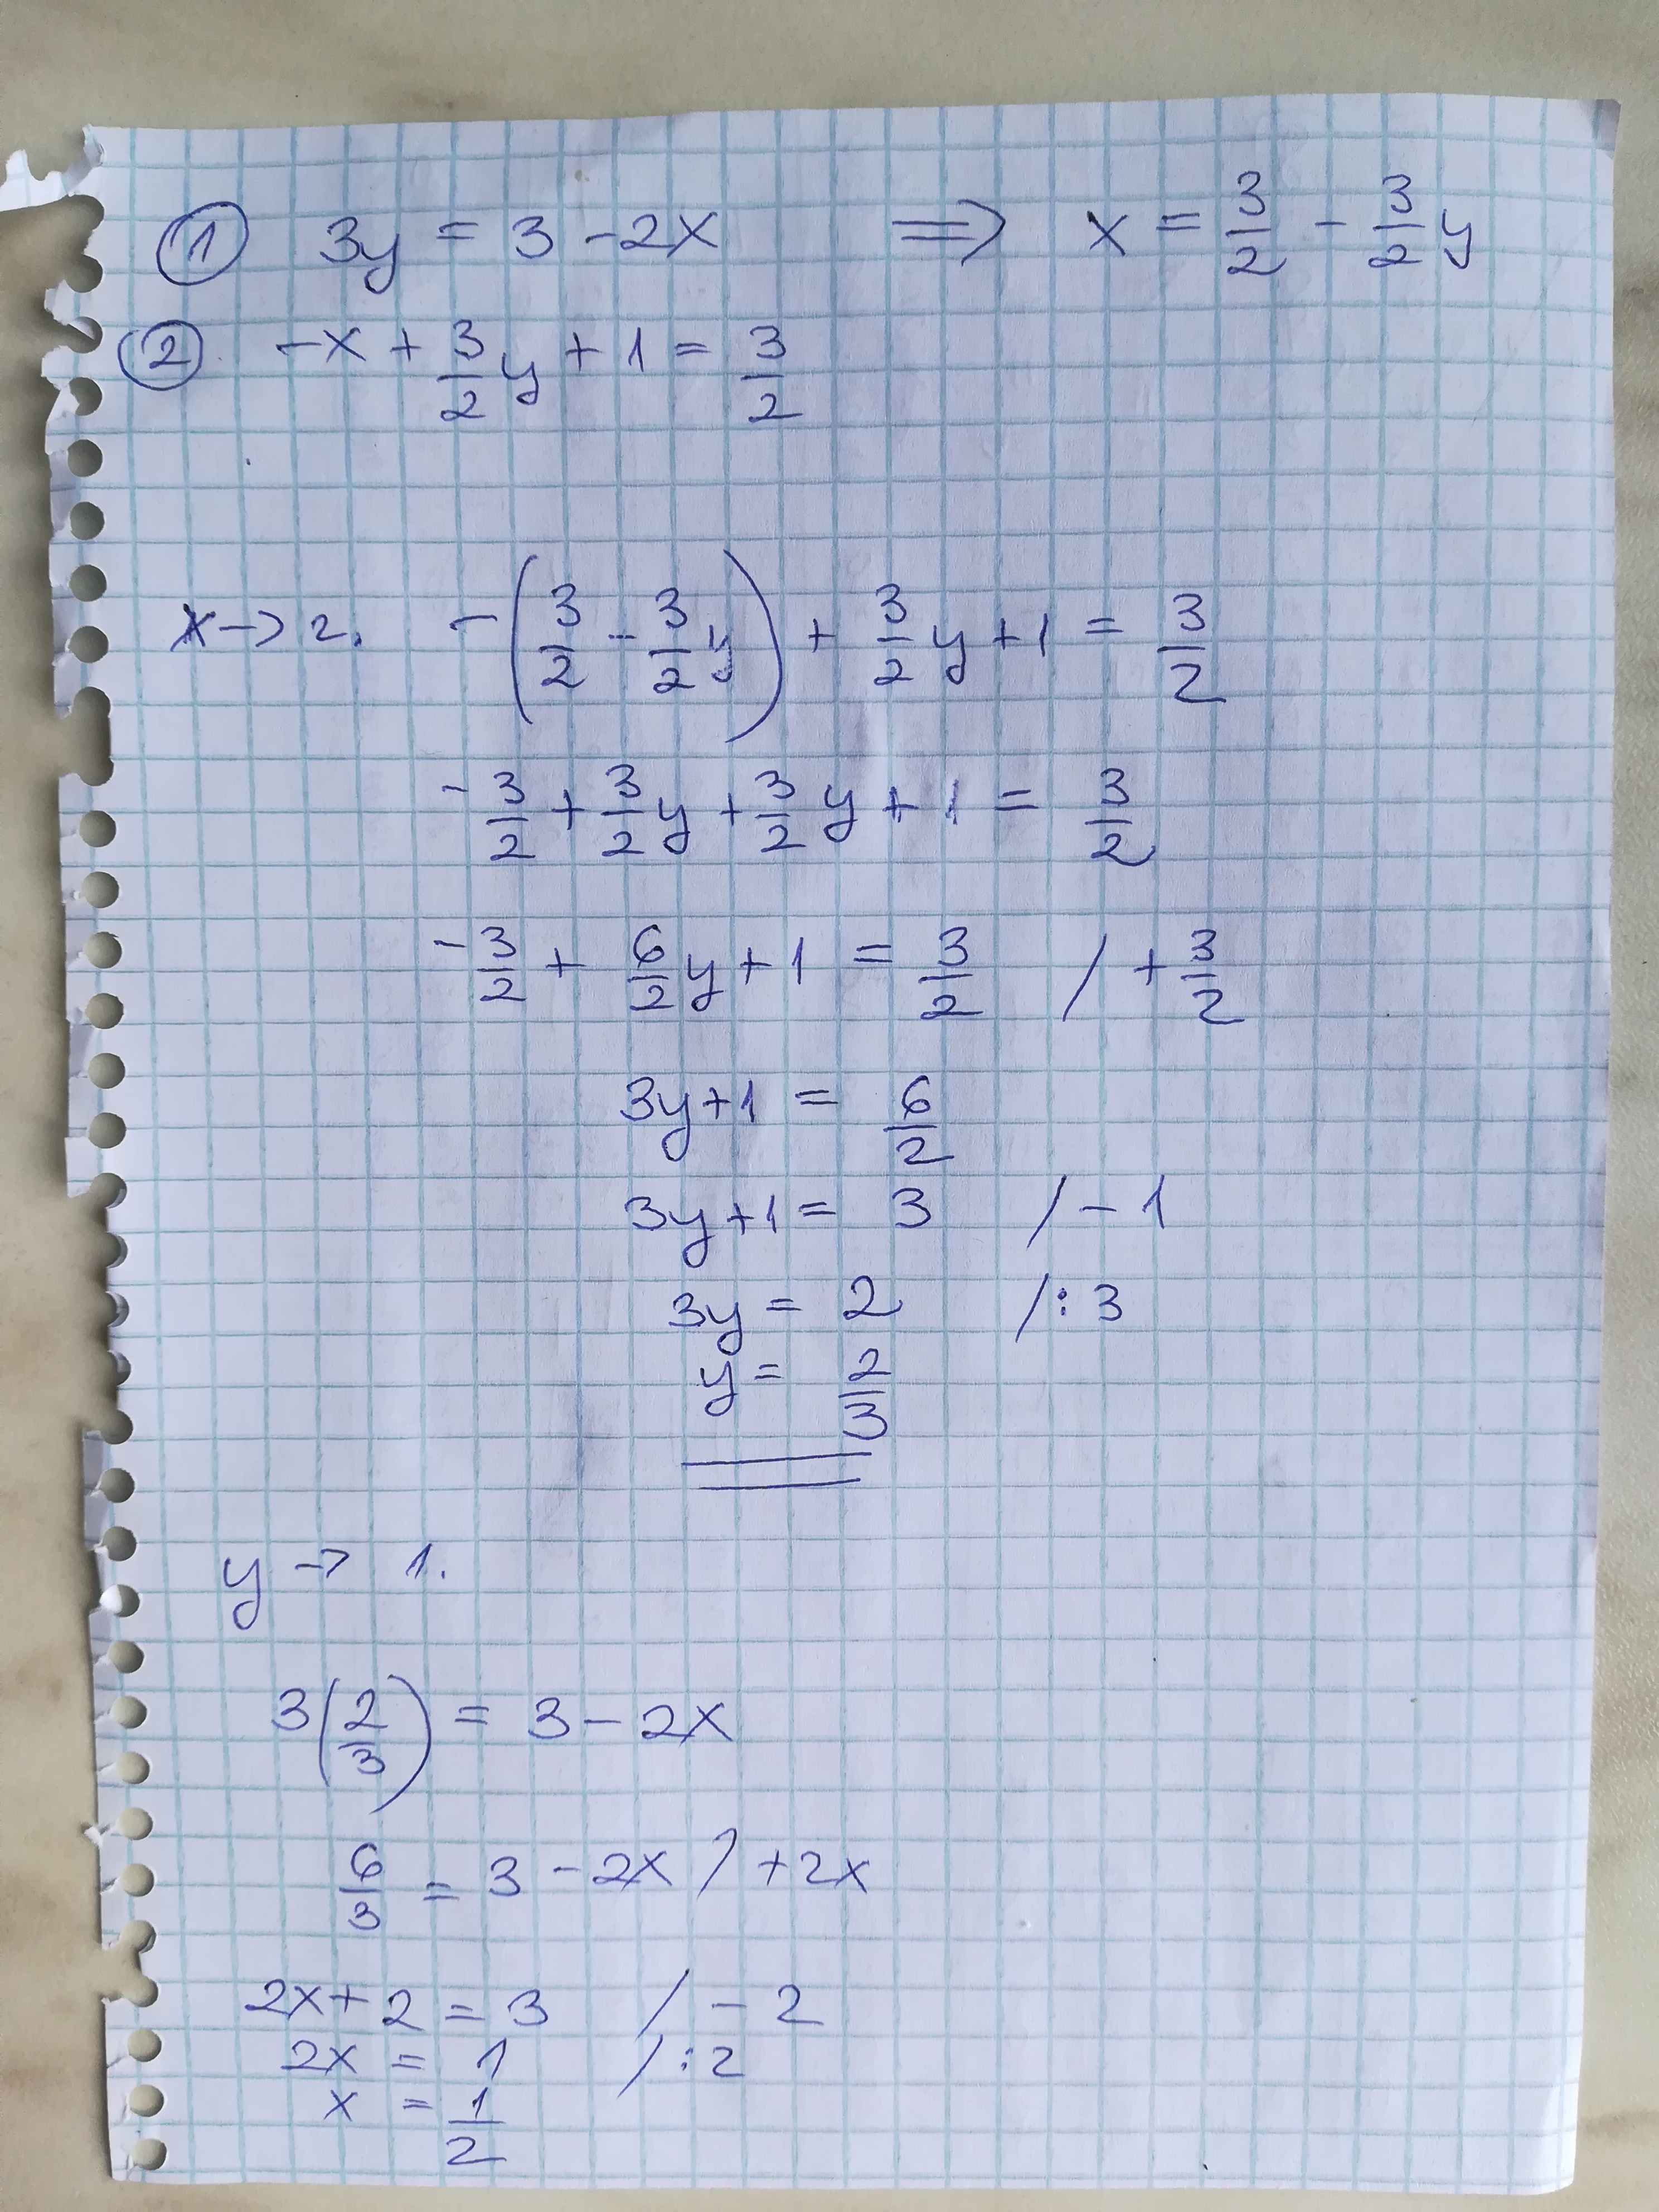 ① 3y = 3 - 2x ⟹ x = 3/2 - 3/2 y
② -x + 3/2 y + 1 = 3/2
x → 2. -(3/2 - 3/2 y) + 3/2 y + 1 = 3/2
-3/2 + 3/2 y + 3/2 y + 1 = 3/2
-3/2 + 6/2 y + 1 = 3/2 / + 3/2
3y + 1 = 6/2
3y + 1 = 3 / - 1
3y = 2 / : 3
y = 2/3
y → 1.
3(2/3) = 3 - 2x
6/3 = 3 - 2x / + 2x
2x + 2 = 3 / - 2
2x = 1 / : 2
x = 1/2